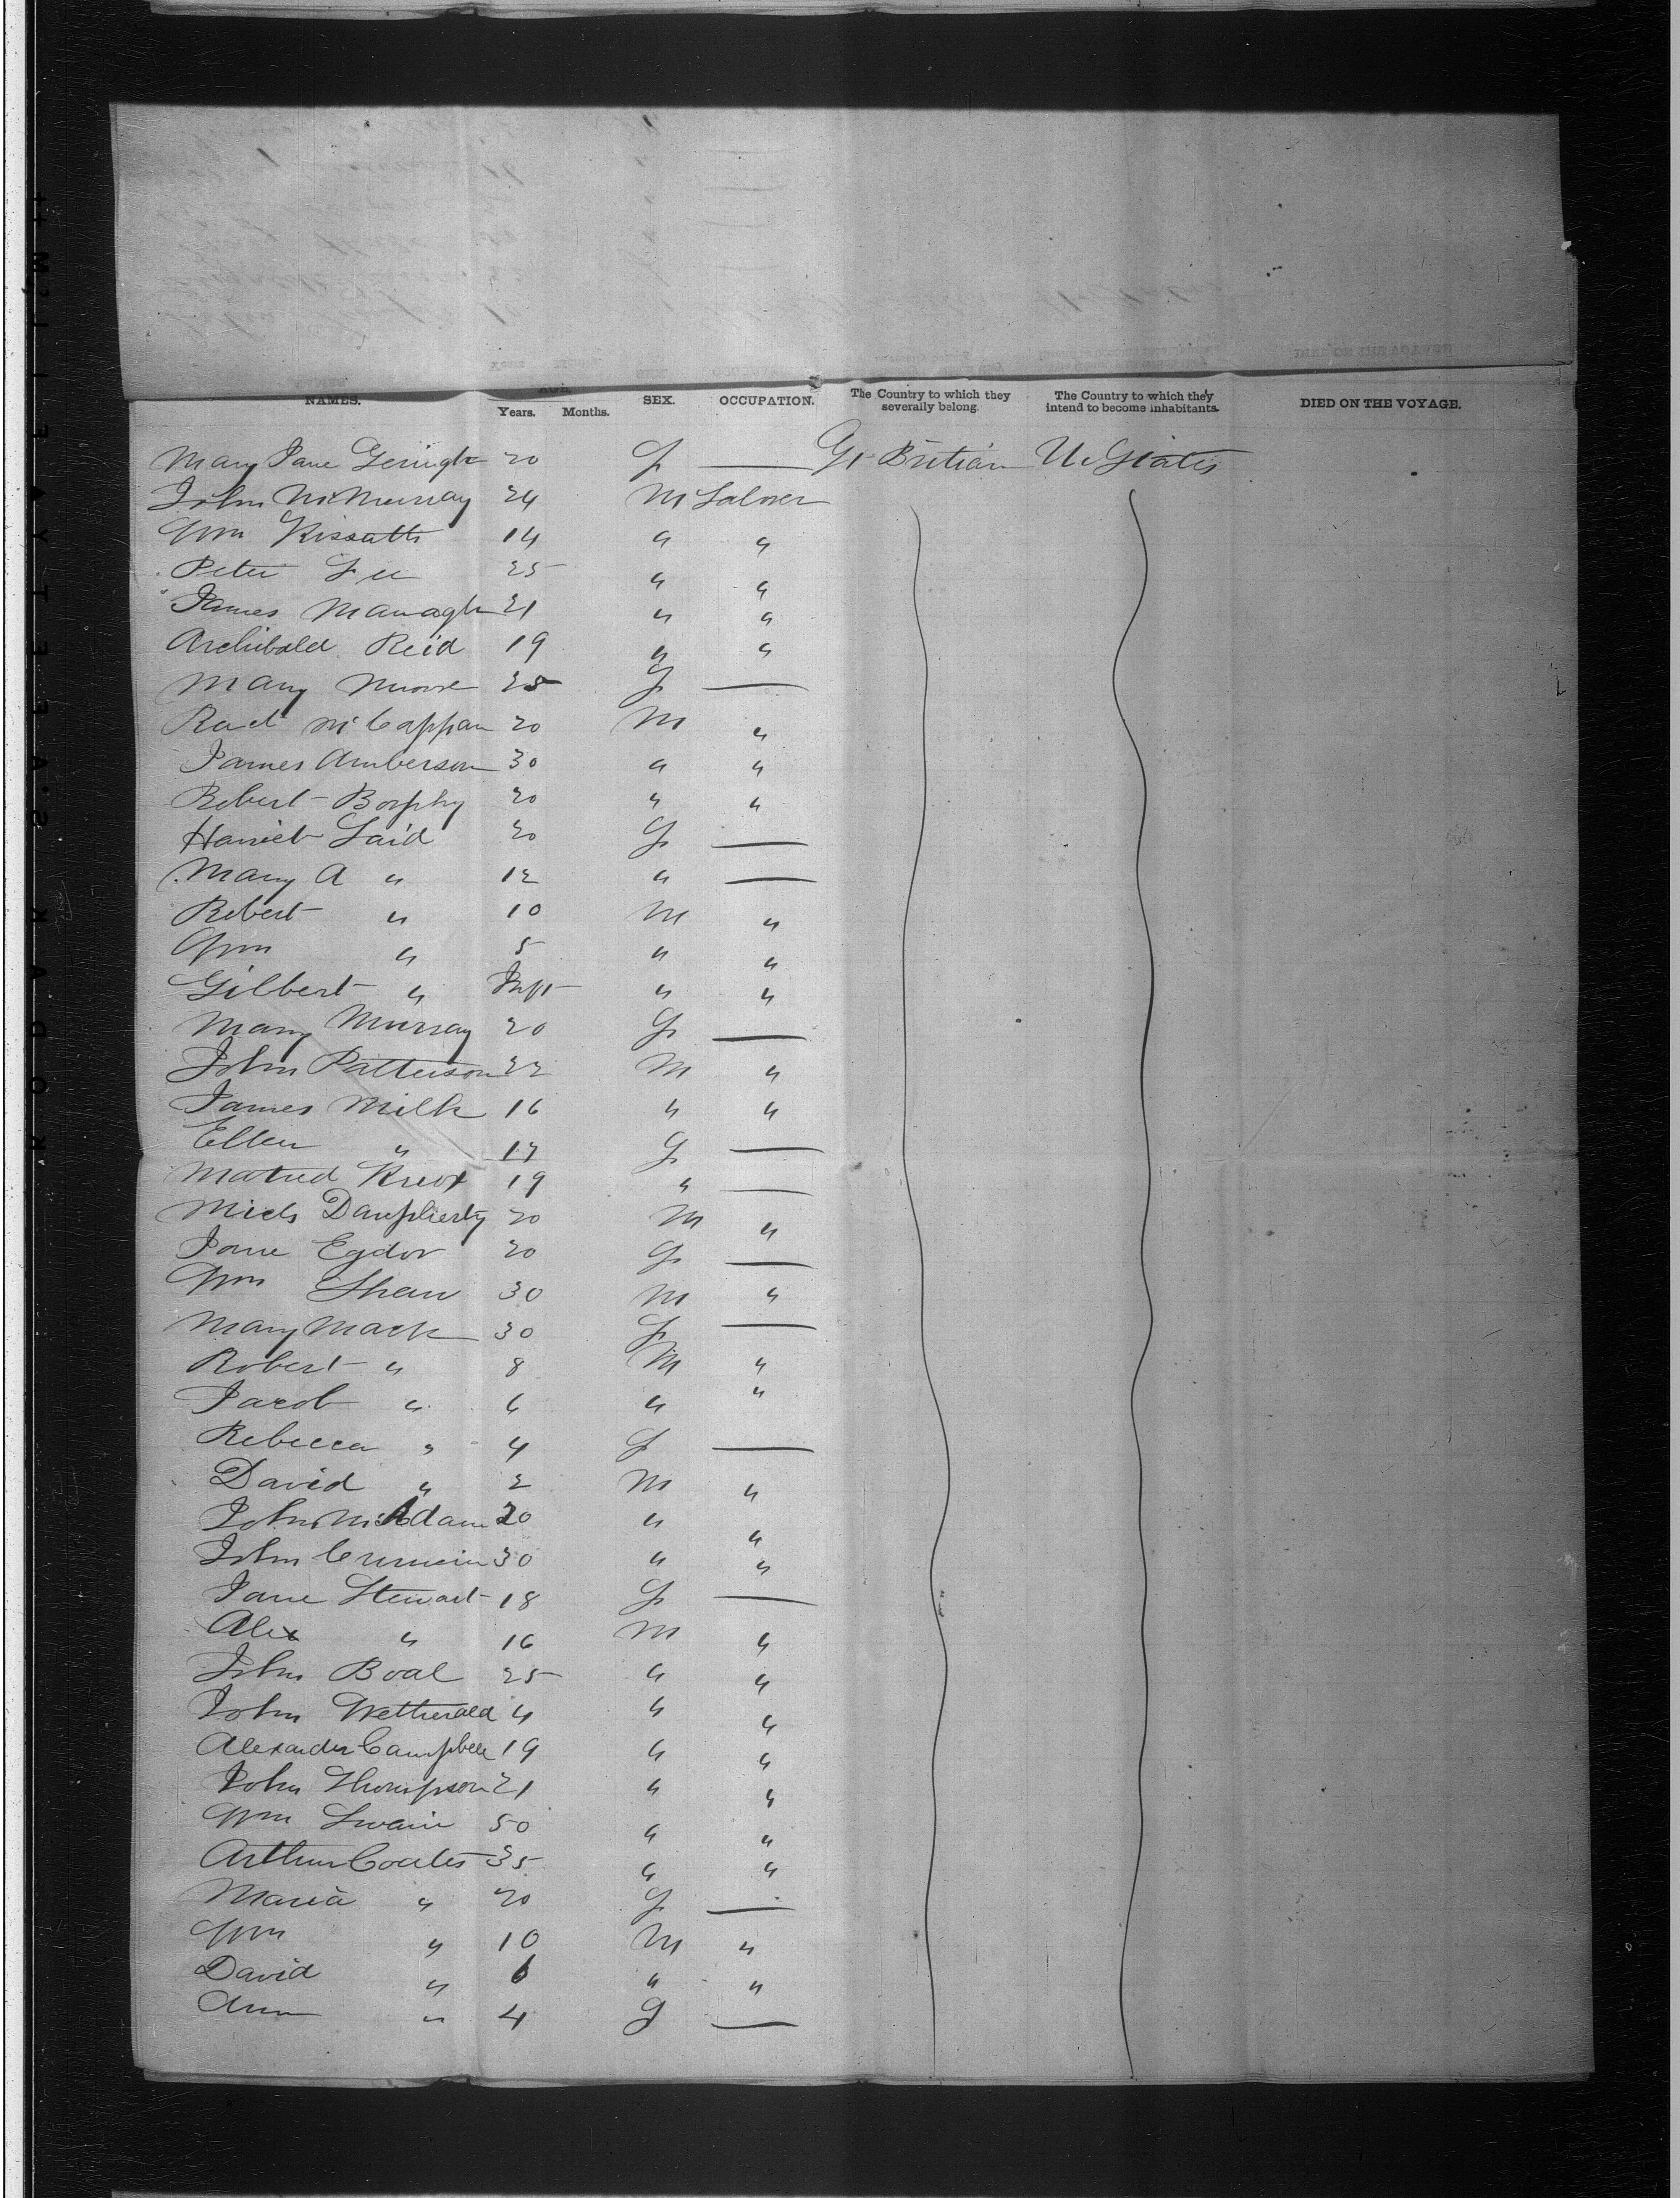 NAMES. Years. Months. SEX. OCCUPATION. The Country to which they severally belong. The Country to which they intend to become inhabitants. DIED ON THE VOYAGE.
Mary Jane 20 F — Gt Britian U. States
John McMurray 24 M Laborer
Wm 14 " "
Peter Lee 25 " "
James Managh 21 " "
Archibald Reid 19 " "
Mary 25 F —
McCappan 20 M "
James Amberson 30 " "
Robert Borphy 20 " "
Harriet Laid 20 F —
Mary A " 12 " —
Robert " 10 M "
Wm " 5 " "
Gilbert " Inft " "
Mary Murray 20 F —
John Patterson 22 M "
James Milk 16 " "
Ellen " 17 F —
Knox 19 " —
20 M "
Jane Egdor 20 F —
Wm Shaw 30 M "
Mary Mack 30 F —
Robert " 8 M "
Jacob " 6 " "
Rebecca " 4 F —
David " 2 M "
John McAdam 20 " "
John 30 " "
Jane Stewart 18 F —
Alex " 16 M "
John Boal 25 " "
John Wetherald 4 " "
Alexander Campbell 19 " "
John Thompson 21 " "
Wm Swain 50 " "
Arthur Coates 35 " "
Maria " 20 F —
Wm " 10 M "
David " 6 " "
Ann " 4 F —